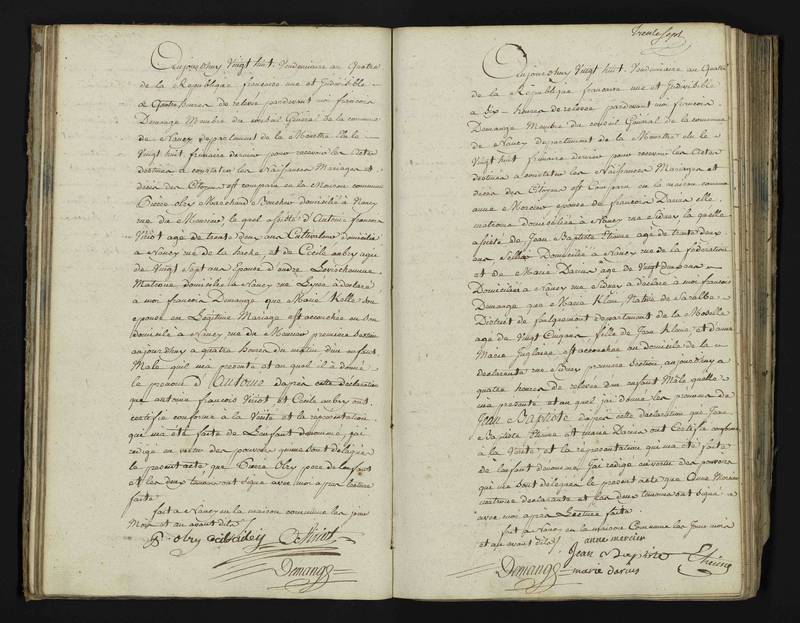 Aujourd'huy Vingt huit Vendemiaire an Quatre
de la Republique francaise une et Indivisible
a Quatre heures de relevé pardevant moi francois
Demange Membre du conseil Général de la commune
de Nancy departement de la Meurthe élu le
Vingt huit frimaire dernier pour recevoir les Actes
destinés a constater les Naissances Mariages et
décès des Citoyens est comparu en la Maison commune
Pierre obry Marchand Boucher domicilié à Nancy
rue du le quel assisté d'Antoine francois
Viriot agé de trente deux ans Cultivateur domicilié
a Nancy rue de la et de Cecile aubry agée
de Vingt Sept ans Epouse d'andre
Matrone domiciliée a Nancy rue a déclaré
a moi francois Demange que Marie son
epouse en Légitime Mariage est accouchée en son
domicile à Nancy rue du premiere Section
aujourd'huy a quatre heures du matin d'un enfant
Male qu'il ma présenté et au quel il à donné
le prenom d'Antoine d'après cette déclaration
que antoine francois Viriot et Cecile aubry ont
certifié conforme à la Vérité et la représentation
qui ma été faite de Lenfant denommé, j'ai
rédigé en vertu des pouvoirs qui me sont délégués
le present acte que Pierre Obry pere de lenfant
et les deux temoins ont signé avec moi après lecture
faite
fait a Nancy en la maison commune les jour
Mois et an avant dits
P. obry Viriot
Demange
Trente Sept
Aujourd'huy Vingt huit Vendemiaire an Quatre
de la République francaise une et Indivisible
a Six heures de relevée pardevant moi francois
Demange Membre du conseil Général de la commune
de Nancy departement de la Meurthe élu le
Vingt huit frimaire dernier pour recevoir les Actes
destinés a constater les Naissances Mariages et
décès des Citoyens est Comparu en la maison commune
anne Mercier epouse de francois
matrone domiciliée a Nancy rue la quelle
assisté de Jean Baptiste Etienne agé de trente deux
ans Sellier Domicilié a Nancy rue de la féderation
et de Marie Darius age de Vingt deux ans
Domiciliée a Nancy rue a déclaré a moi francois
Demange que Marie Native de
District de departement de la Moselle
age de Vingt Cinq ans fille de Jean et danne
Marie est accouchée au domicile de la
declarante rue premiere Section aujourd'huy a
quatre heures de relevée d'un enfant Male quelle
ma presenté et au quel j'ai donné les prenoms de
Jean Baptiste d'après cette déclaration que Jean
Baptiste Etienne et marie Darius ont Certifié conforme
à la Verité et la réprésentation qui ma été faite
de lenfant denommé J'ai redigé en vertu des pouvoirs
qui me sont délegués le present acte que Anne Mercier
matrone declarante et les deux temoins ont signé
avec moi après Lecture faite
fait à Nancy en la maison Commune les Jour mois
et an avant dits
anne mercier
Jean Baptiste Etienne
Demange marie darius